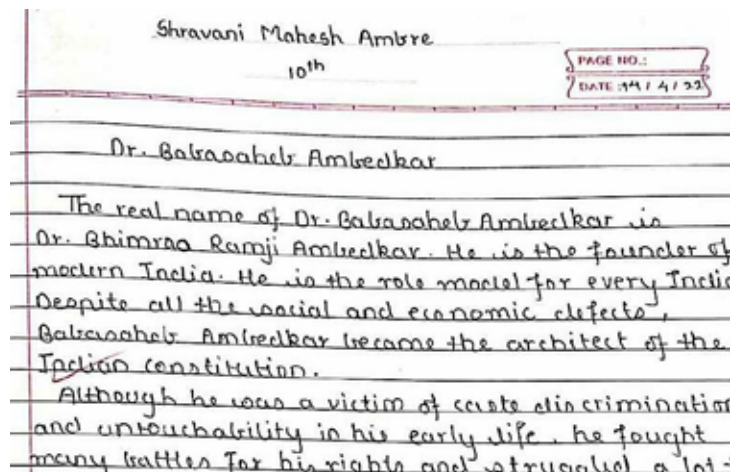 Shravani Mahesh Ambre
10th
PAGE NO.:
DATE: 14 / 4 / 22
Dr. Babasaheb Ambedkar
The real name of Dr. Babasaheb Ambedkar is
Dr. Bhimrao Ramji Ambedkar. He is the founder of
modern India. He is the role model for every India
Despite all the social and economic defects,
Babasaheb Ambedkar became the architect of the
Indian constitution.
Although he was a victim of caste discrimination
and untouchability in his early life, he fought
many battles for his rights and struggled a lot